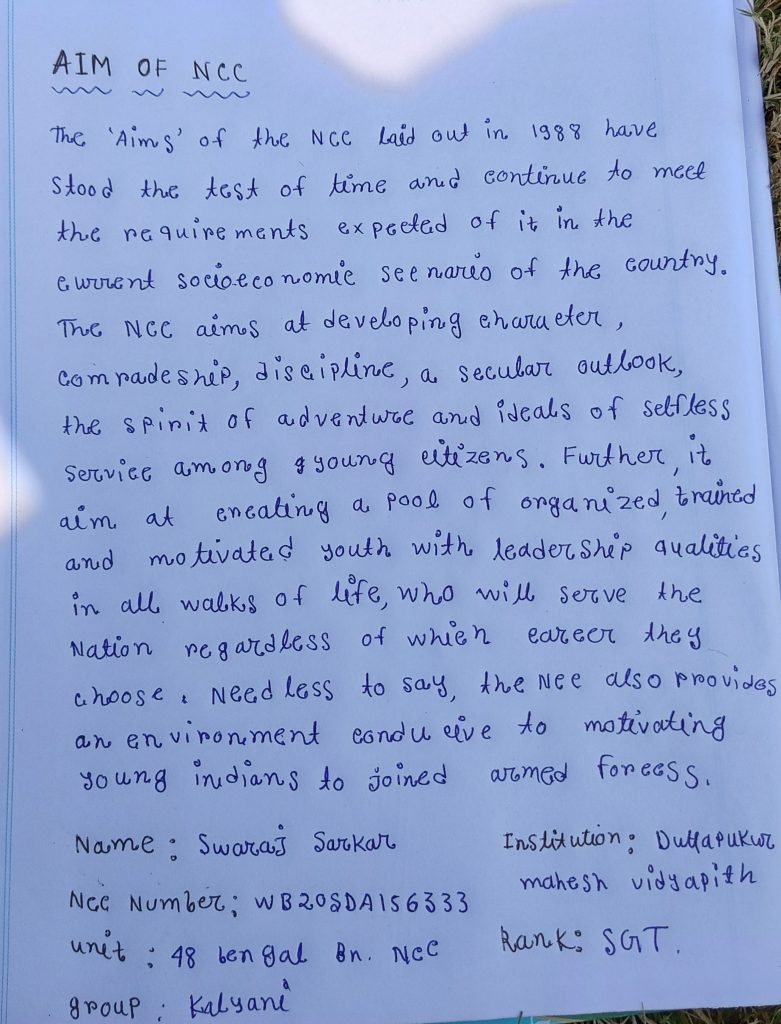 AIM OF NCC
The 'Aims' of the NCC laid out in 1988 have
stood the test of time and continue to meet
the requirements expected of it in the
current socioeconomic scenario of the country.
The NCC aims at developing character,
comradeship, discipline, a secular outlook,
the spirit of adventure and ideals of selfless
service among young citizens. Further, it
aim at creating a pool of organized, trained
and motivated youth with leadership qualities
in all walks of life, who will serve the
Nation regardless of which career they
choose. Needless to say, the NCC also provides
an environment conducive to motivating
young indians to joined armed forcess.
Name : Swaraj Sarkar
Institution : Duttapukur
mahesh vidyapith
NCC Number : WB20SDA156333
Rank : SGT.
unit : 48 bengal Bn. NCC
group : Kalyani